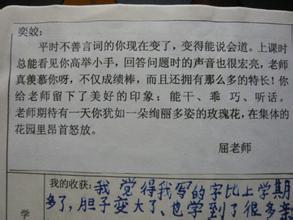 奕姣：
平时不善言词的你现在变了，变得能说会道。上课时
总能看见你高举小手，回答问题时的声音也很宏亮，老师
真羡慕你呀，不仅成绩棒，而且还拥有那么多的特长！你
给老师留下了美好的印象：能干、乖 巧、听话。
老师期待有一天你犹如一朵绚丽多姿的玫瑰花，在集体的
花园里昂首怒放。
屈老师
我的收获：我 觉得我写的字比上学期
学 多了，胆子变大了、也学到了很多